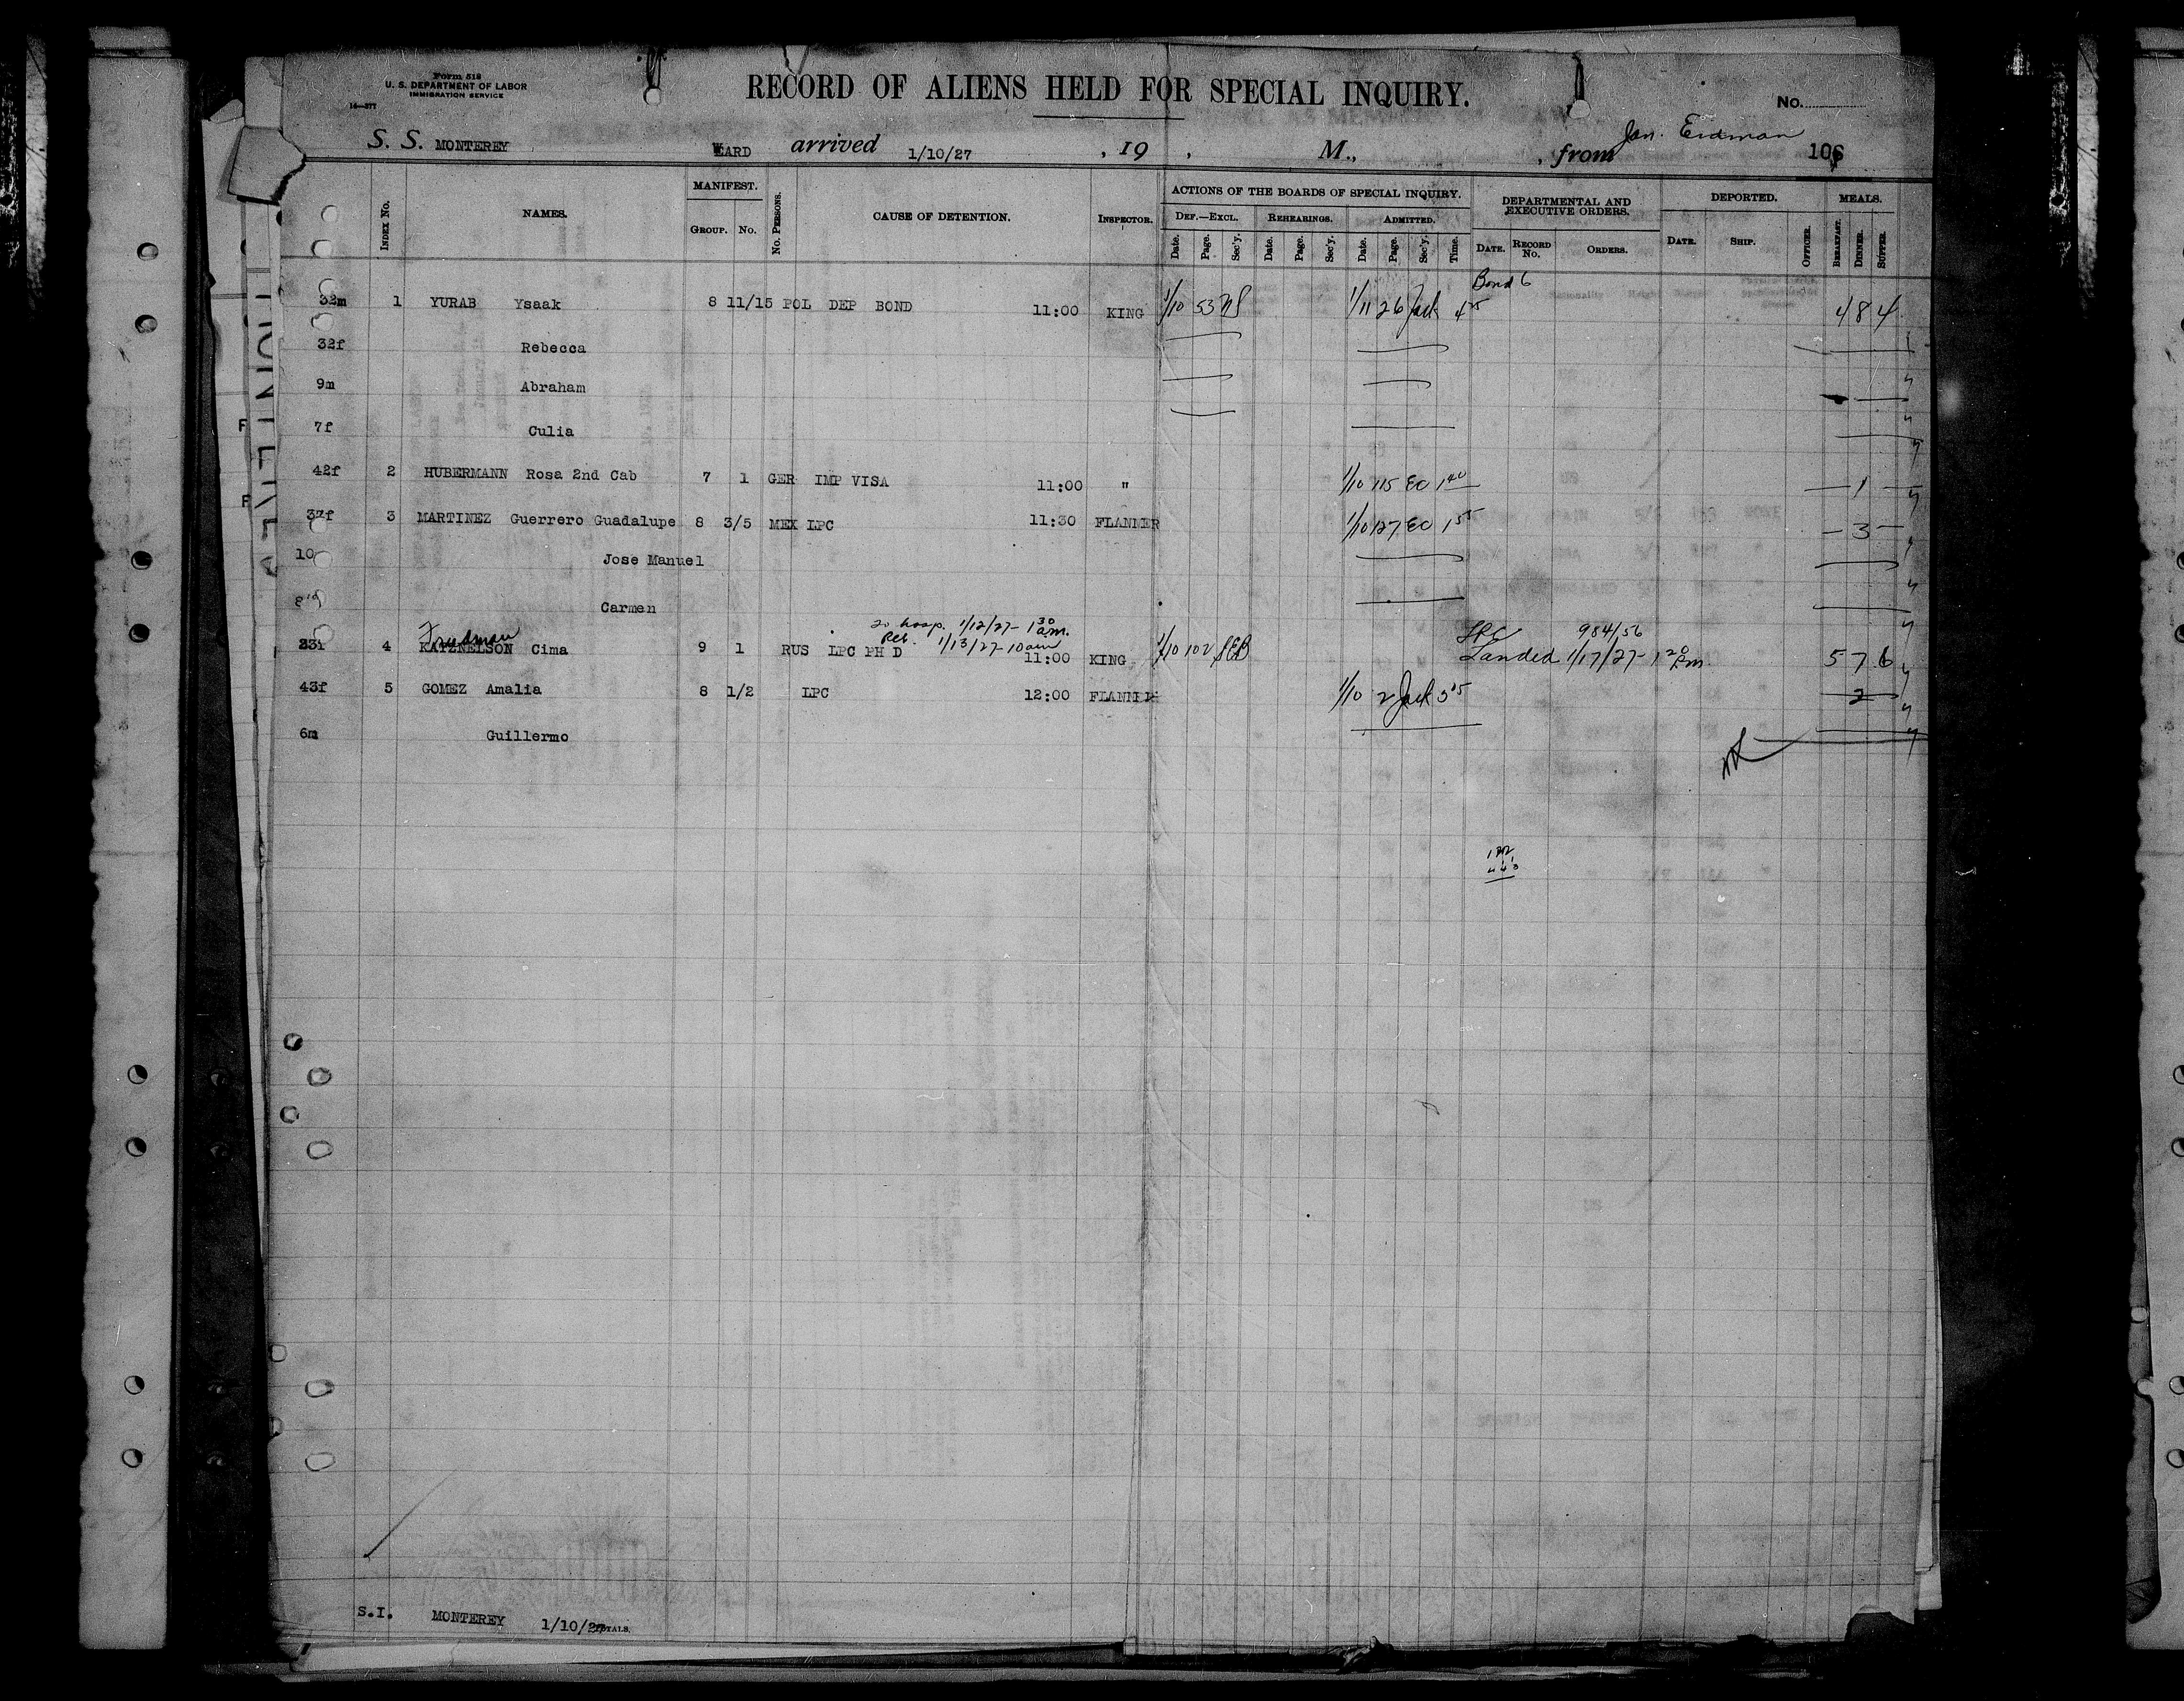 Form 518
U. S. DEPARTMENT OF LABOR
IMMIGRATION SERVICE
14—377
RECORD OF ALIENS HELD FOR SPECIAL INQUIRY.
No.
S. S. MONTEREY WARD arrived 1/10/27 , 19 , M., , from Jan. Erdman 106
INDEX No. NAMES. MANIFEST. GROUP. No. No. PERSONS. CAUSE OF DETENTION. INSPECTOR. ACTIONS OF THE BOARDS OF SPECIAL INQUIRY. DEF.—EXCL. REHEARINGS. ADMITTED. DEPARTMENTAL AND EXECUTIVE ORDERS. DEPORTED. MEALS.
Date. Page. Sec'y. Date. Page. Sec'y. Date. Page. Sec'y. Time. DATE. RECORD No. ORDERS. DATE. SHIP. OFFICER. BREAKFAST. DINNER. SUPPER.
Bond 6
32m 1 YURAB Ysaak 8 11/15 POL DEP BOND 11:00 KING 1/10 53 1/11 26 Jack 4 25 4 8 4
32f Rebecca
9m Abraham
7f Culia
42f 2 HUBERMANN Rosa 2nd Cab 7 1 GER IMP VISA 11:00 " 1/10 115 EO 1 40 1
37f 3 MARTINEZ Guerrero Guadalupe 8 3/5 MEX LPC 11:30 FLANNER 1/10 127 EO 1 55 3
10 Jose Manuel
8 Carmen
Friedman to hosp. 1/12/27- 1 30 am.
Rel. 1/13/27-10 am LPC 984/56
23f 4 KATZNELSON Cima 9 1 RUS LPC PH D 11:00 KING 1/10 102 SEB Landed 1/17/27- 1 20 Pm. 5 7 6
43f 5 GOMEZ Amalia 8 1/2 LPC 12:00 FLANNER 1/10 2 Jack 3 05 2
6m Guillermo
S.I. MONTEREY 1/10/27 TOTALS.